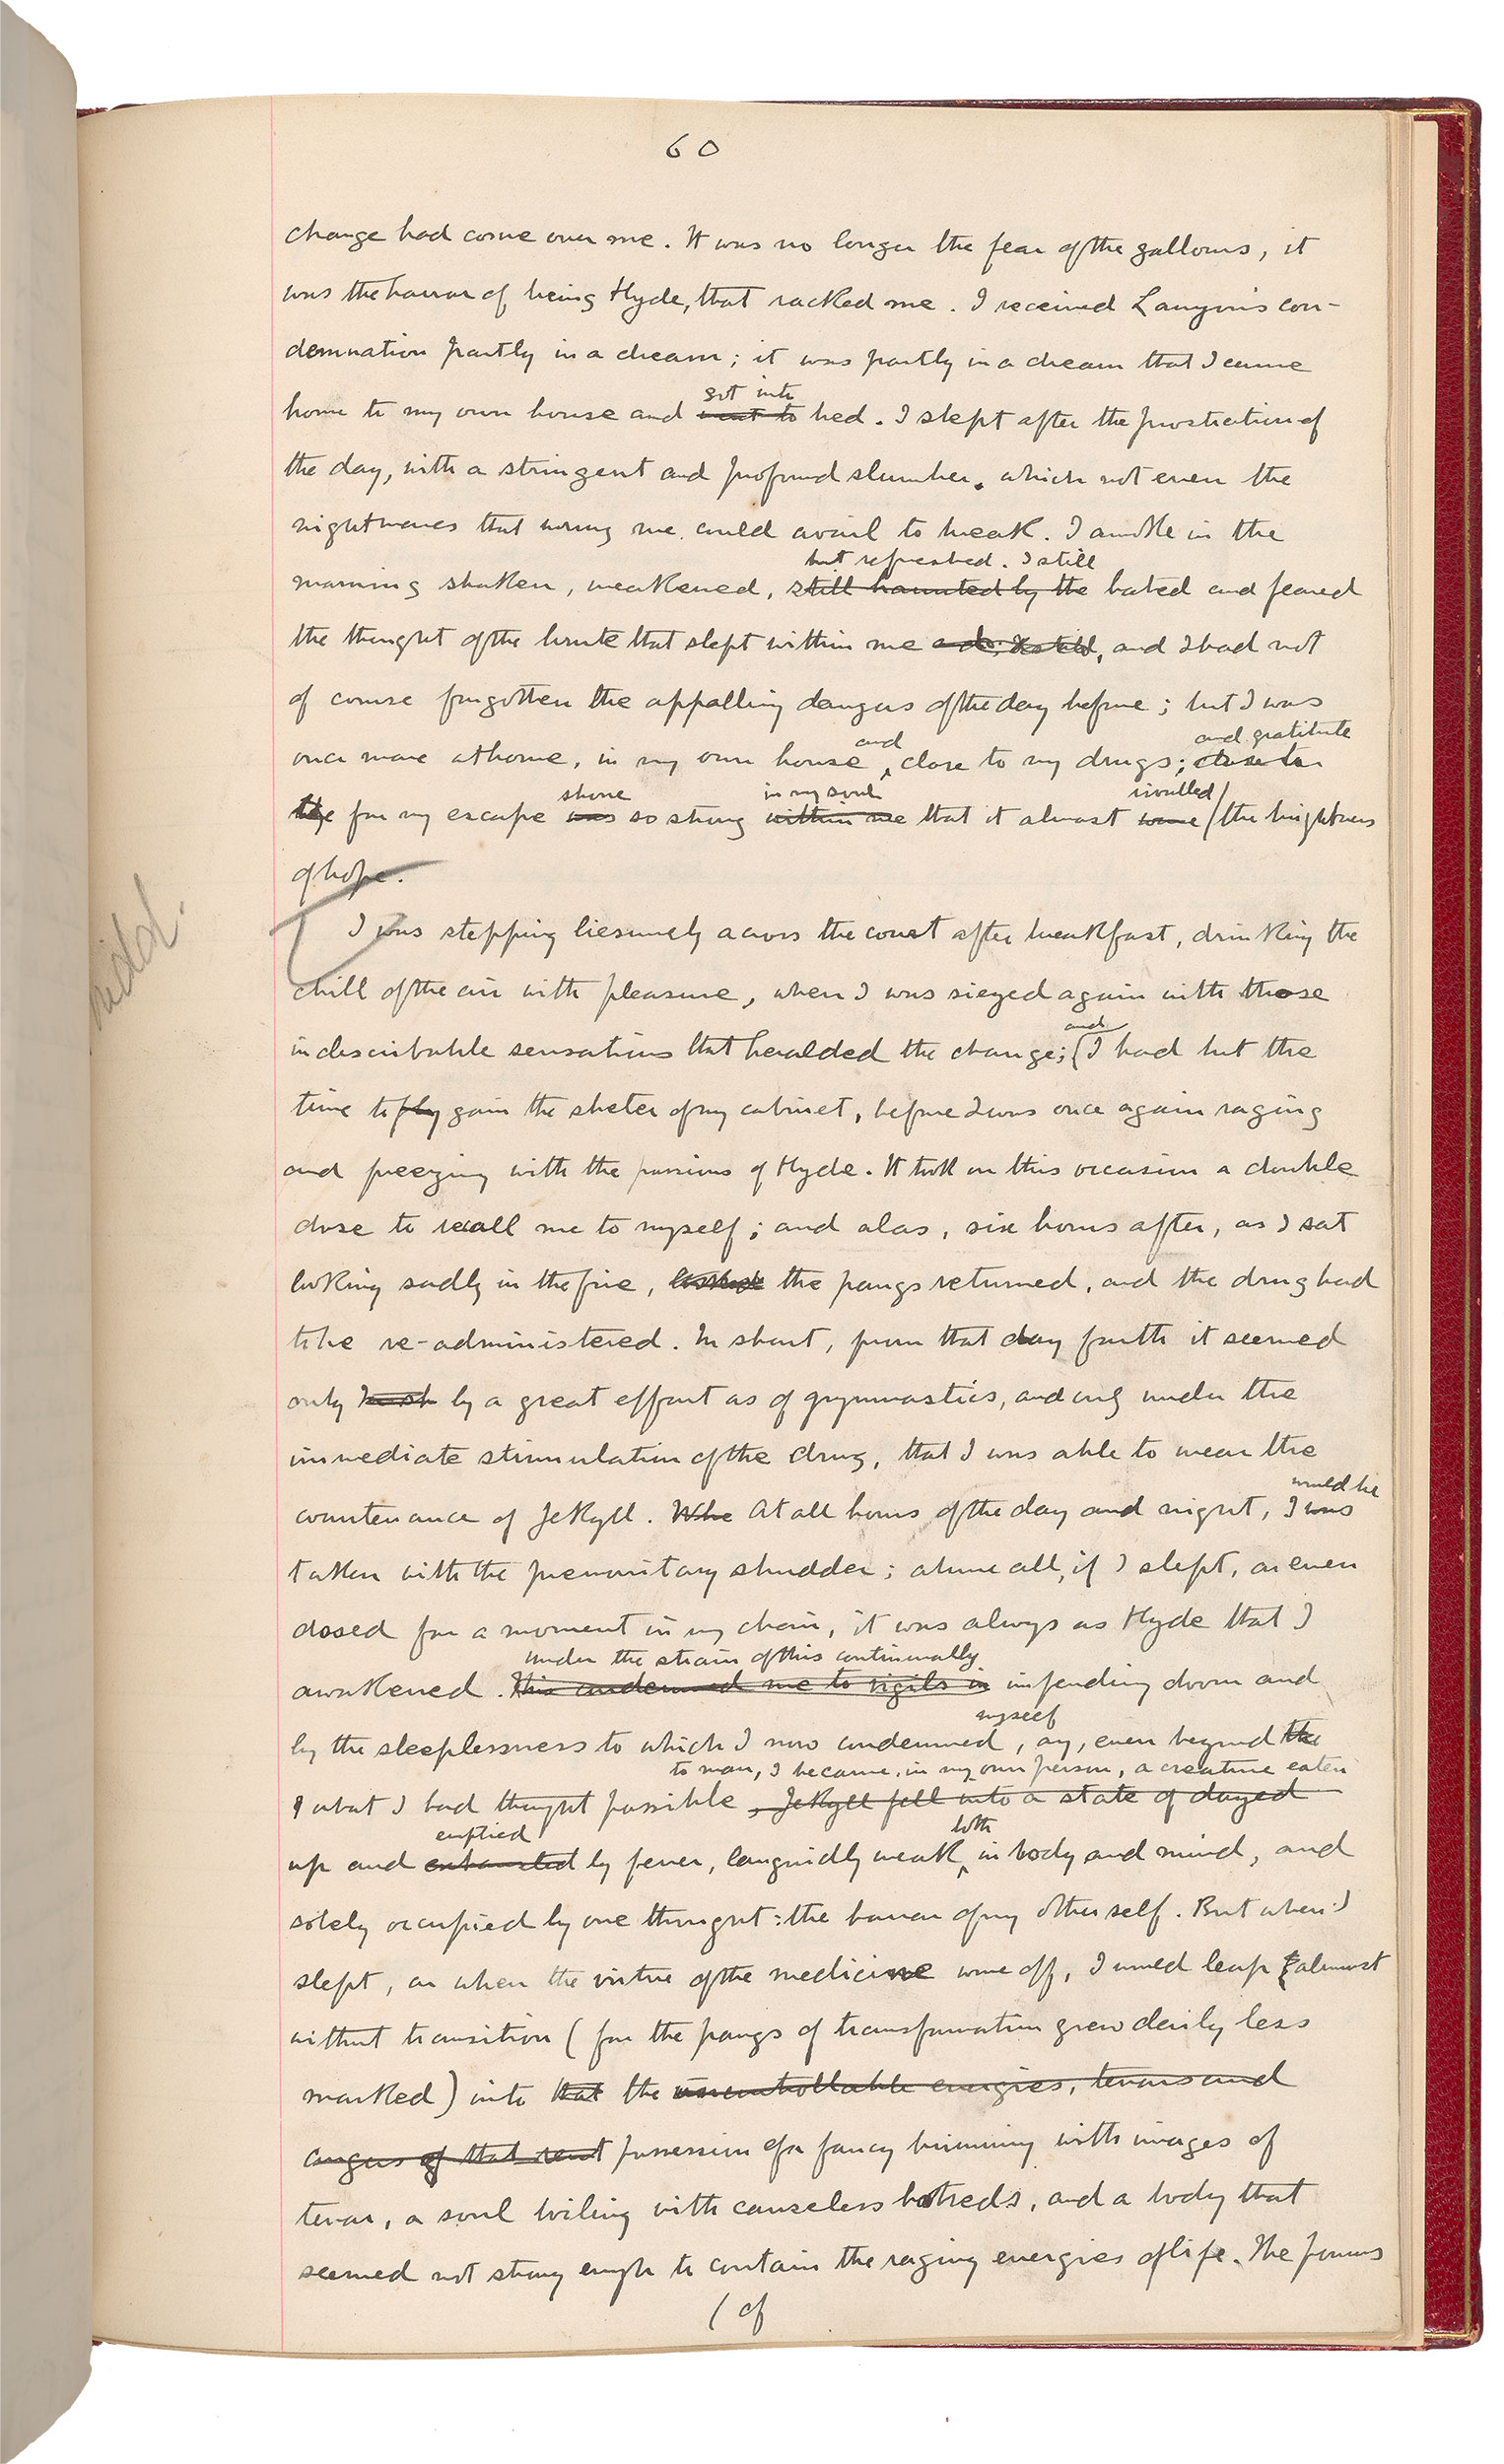 60
change had come over me. It was no longer the fear of the gallows, it
was the horror of being Hyde, that racked me. I received Lanyon's con-
demnation partly in a dream; it was partly in a dream that I came
got into
home to my own house and went to bed. I slept after the prostration of
the day, with a stringent and profound slumber, which not even the
nightmares that wrung me could avail to break. I awoke in the
but refreshed. I still
morning shaken, weakened, still haunted by the hated and feared
the thought of the brute that slept within me, and I had not
of course forgotten the appalling dangers of the day before; but I was
and and gratitute
once more at home, in my own house close to my drugs; close to
shone in my soul rivalled
the for my escape was so strong within me that it almost wore the brightness
of hope.
I was stepping liesurely across the court after breakfast, drinking the
chill of the air with pleasure, when I was siezed again with those
and
indescribable sensations that heralded the change; I had but the
time to fly gain the shelter of my cabinet, before I was once again raging
and freezing with the passions of Hyde. It took on this occasion a double
dose to recall me to myself; and alas, six hours after, as I sat
looking sadly in the fire, the pangs returned, and the drug had
to be re-administered. In short, from that day forth it seemed
only by a great effort as of gymnastics, and only under the
immediate stimulation of the drug, that I was able to wear the
would be
countenance of Jekyll. Whe At all hours of the day and night, I was
taken with the premonitary shudder; above all, if I slept, or even
dosed for a moment in my chair, it was always as Hyde that I
under the strain of this continually
awakened. This condemned me to vigils in impending doom and
myself
by the sleeplessness to which I now condemned, ay, even beyond the
to man, I became, in my own person, a creature eaten
what I had thought possible, Jekyll fell into a state of dazed
emptied both
up and exhausted by fever, languidly weak in body and mind, and
solely occupied by one thought: the horror of my other self. But when I
slept, or when the virtue of the medicine wore off, I would leap almost
without transition (for the pangs of transformation grew daily less
marked) into that the uncontrollable energies, terrors and
angers of that possession of a fancy brimming with images of
terror, a soul boiling with causeless hatreds, and a body that
seemed not strong enough to contain the raging energies of life. The powers
(of